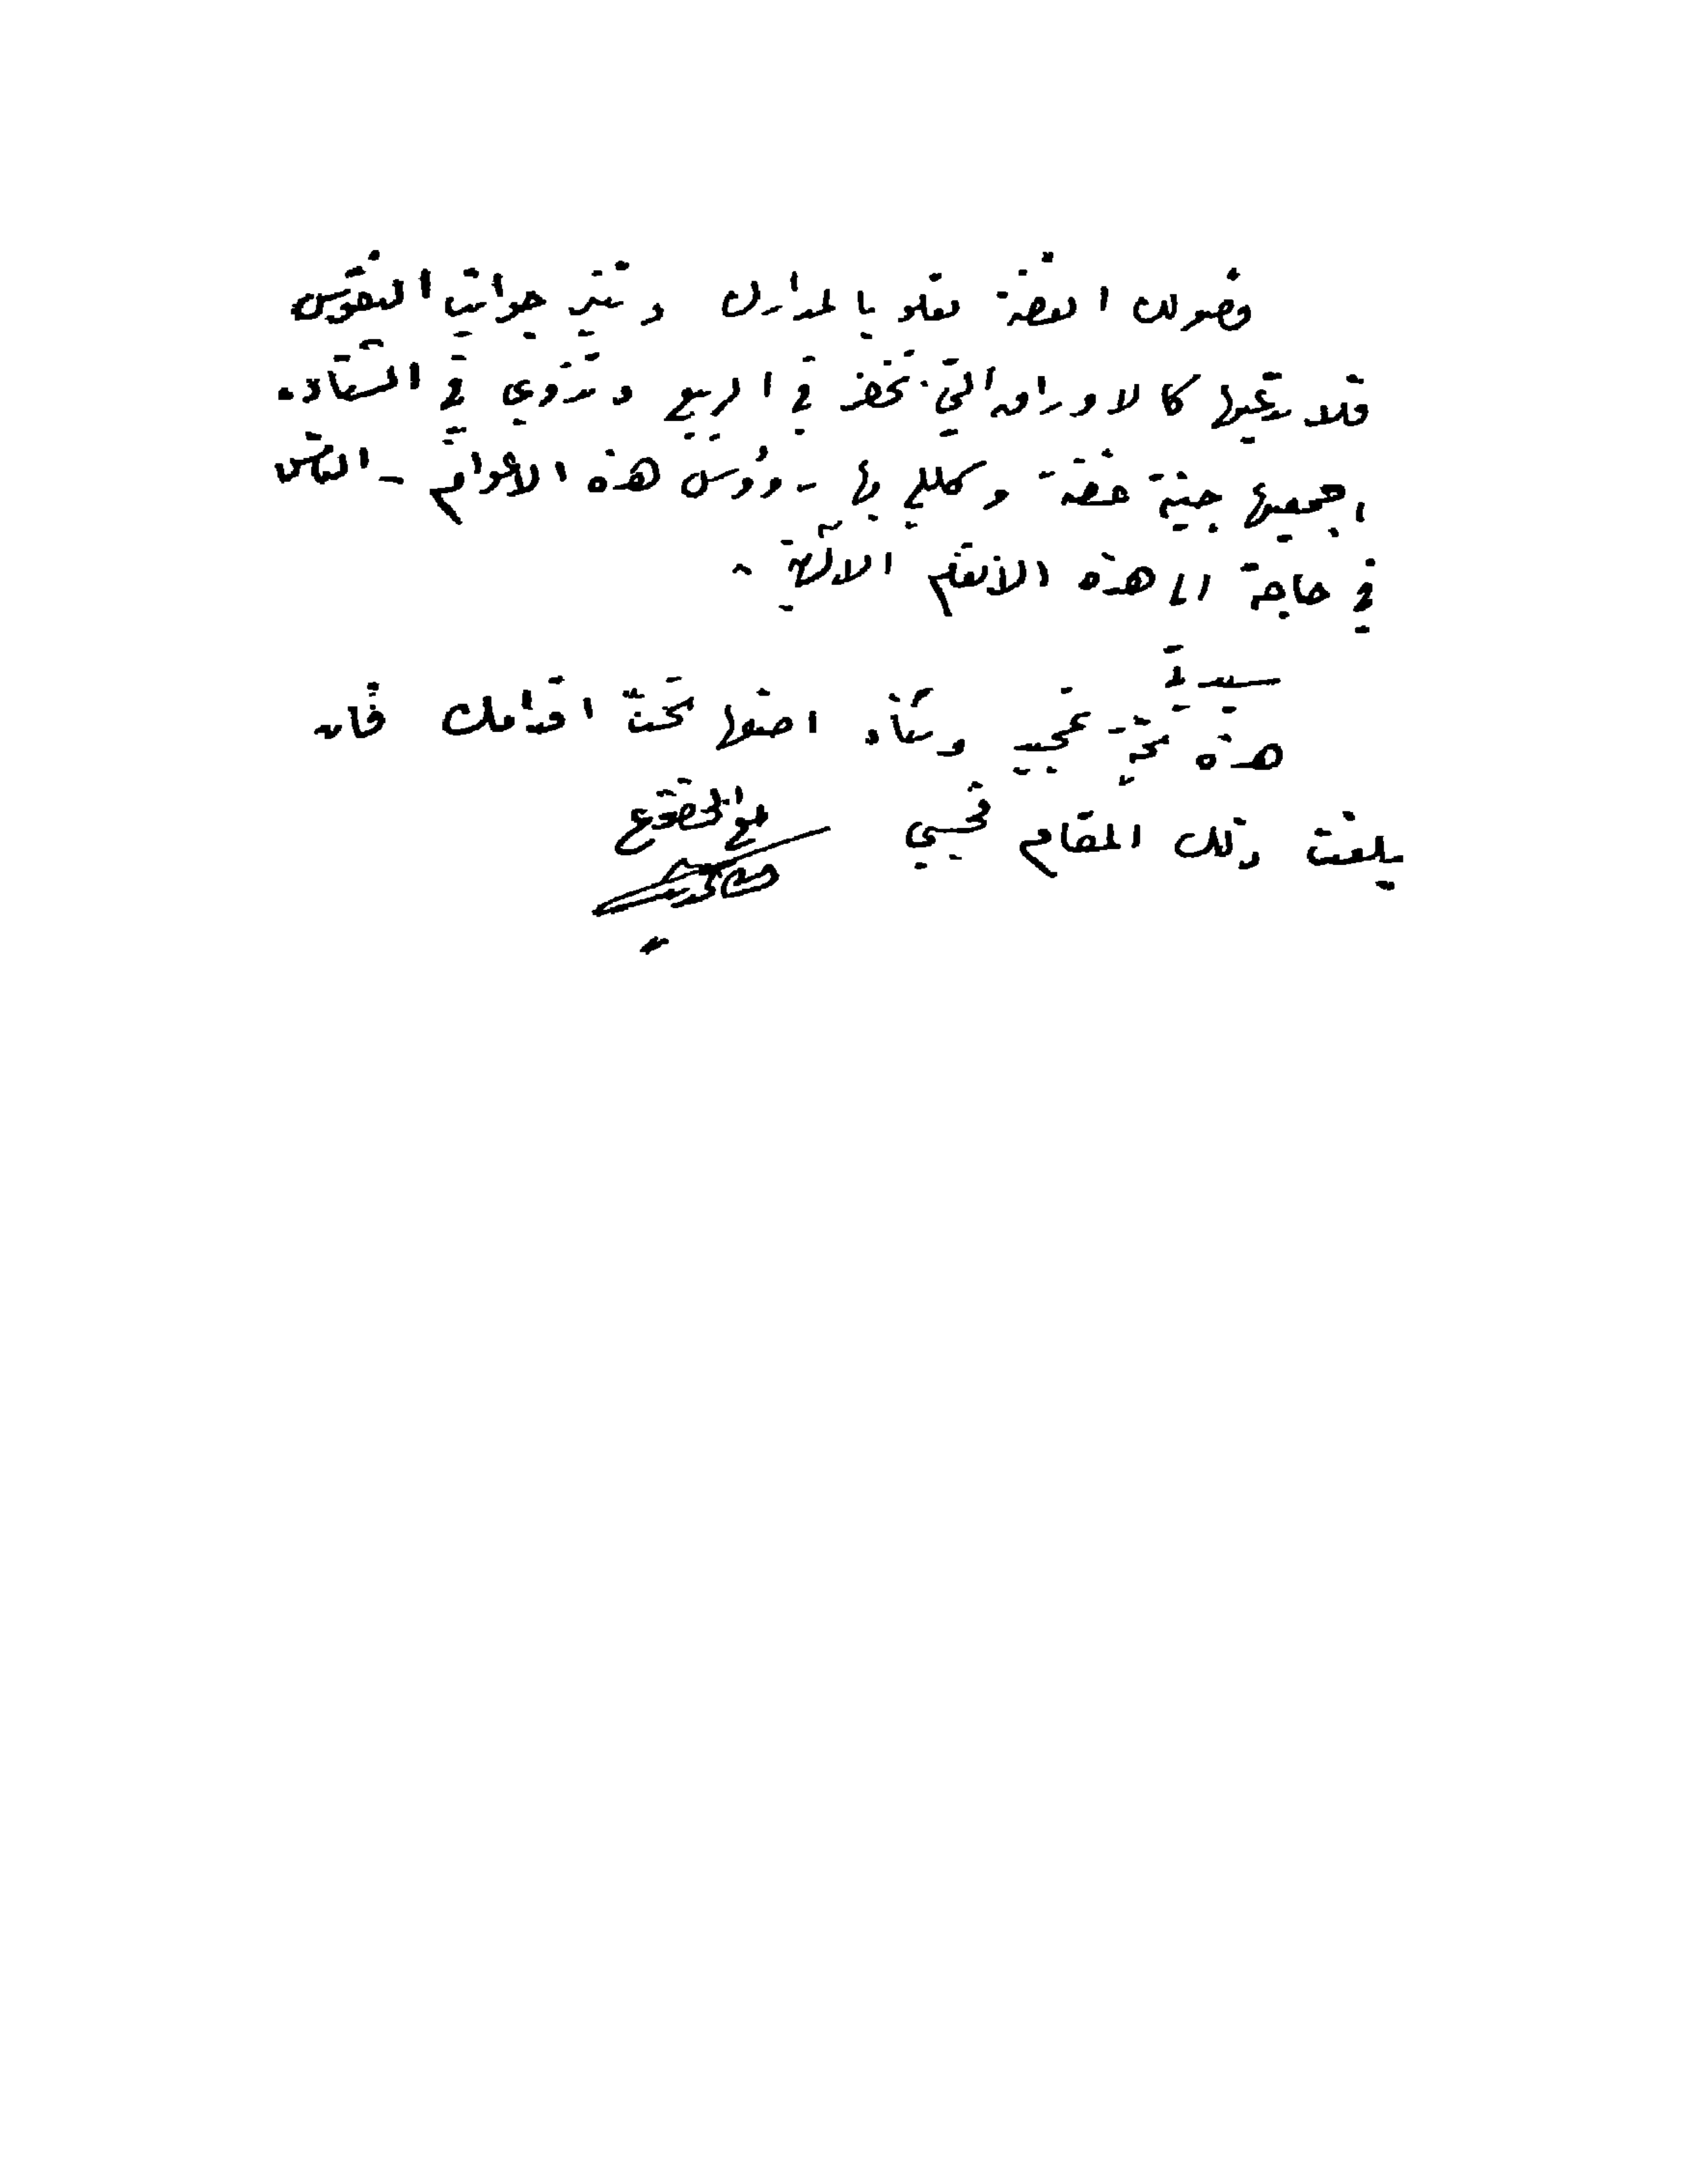 فصولك الغضة تعلو بالمدارك وتنير جوانب النفوس
فلا تدعيها كالاوراق التي تخضر في الربيع وتذوي في الشتاء.
اجمعيها جنينة غضة وكللي بها رؤوس هذه الاعوام - الناس
في حاجة الى هذه الانغام الالهية.
سيدتي
هذه تحية تمجيد وثناء اضعها تحت اقدامك فان
بلغت ذلك المقام فحسبي
مع الخضوع